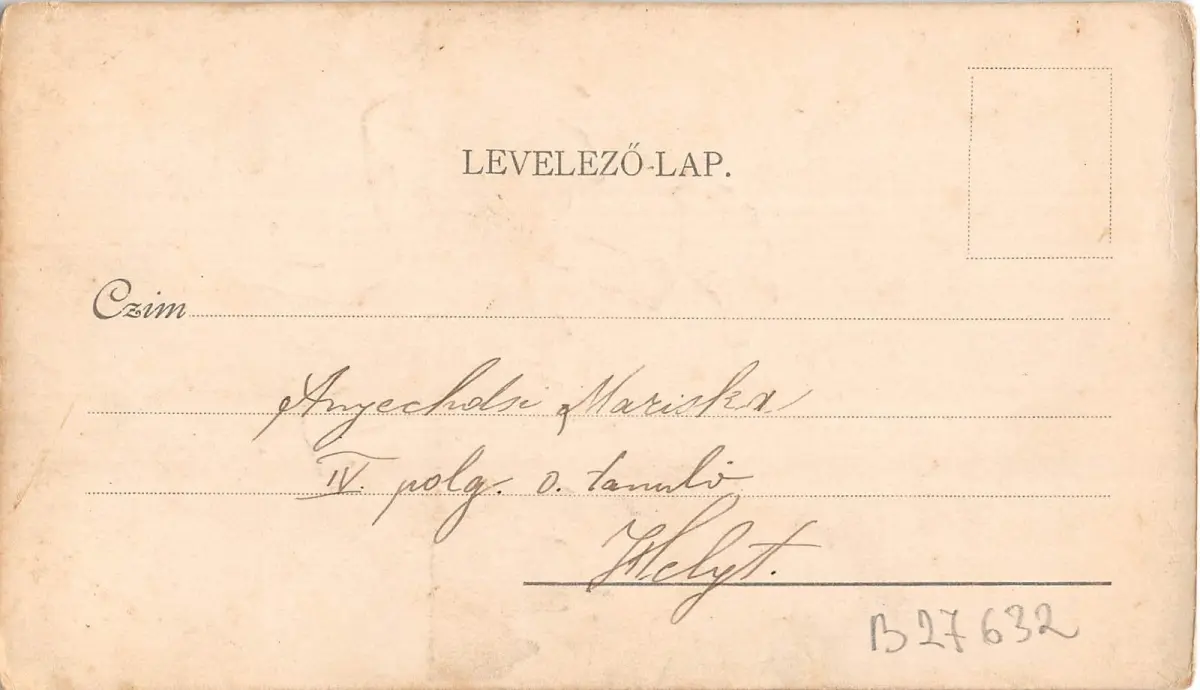 LEVELEZŐ-LAP.
Czim
Mariska
IV. polg. o. tanuló
Helyt.
B 27 632